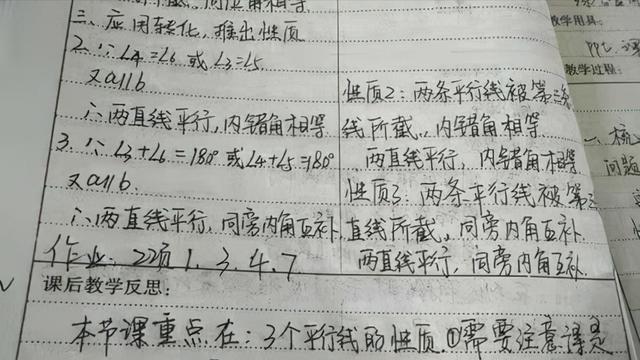 同位角相等
三、应用转化,推出性质
2.∵∠4=∠6 或∠3=∠5
又a∥b
∴两直线平行,内错角相等
3.∵∠3+∠6=180°或∠4+∠5=180°
又a∥b.
∴两直线平行,同旁内角互补.
作业:22页1.3.4.7
性质2:两条平行线被第三条
线所截,内错角相等
两直线平行,内错角相等
性质3:两条平行线被第三
直线所截,同旁内角互补.
两直线平行,同旁内角互补.
课后教学反思:
本节课重点在:3个平行线的性质.①需要注意
教学用具:
PPT、课
教学过程:
一、梳
问题